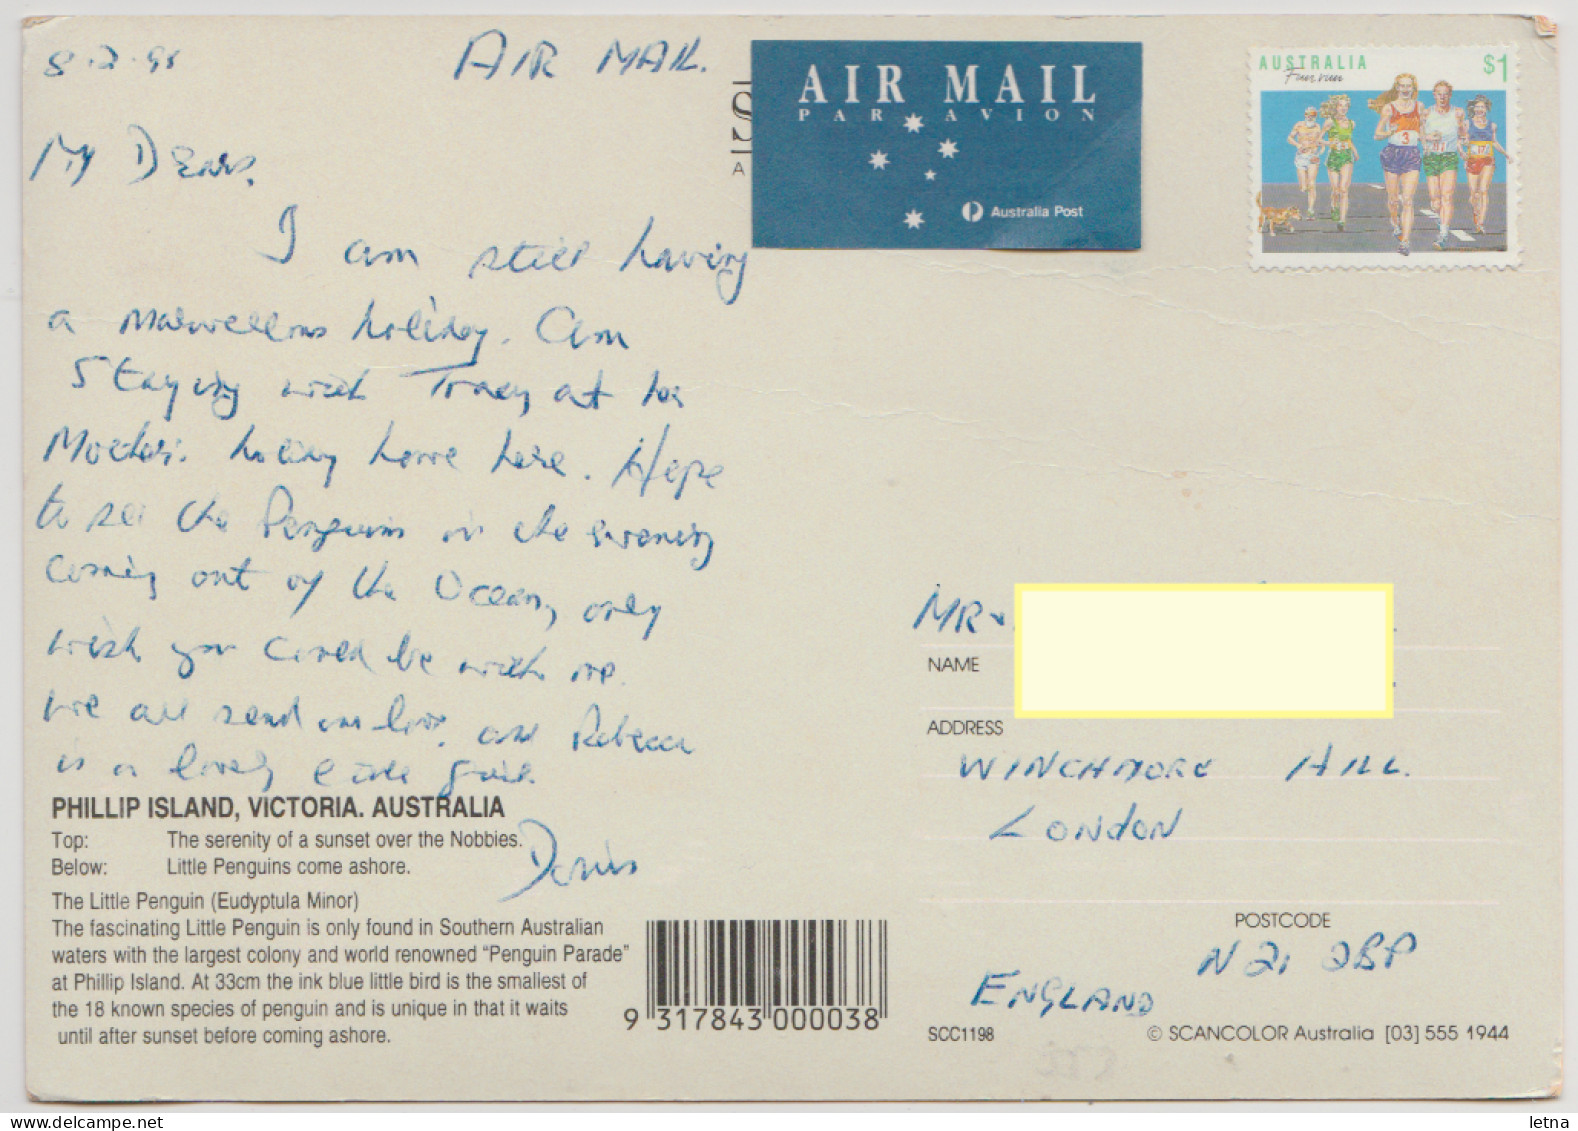 8.2.95
AIR MAIL.
AIR MAIL
PAR AVION
Australia Post
A
AUSTRALIA $1
Fun run
3
My Dears,
I am still having
a marvellous holiday. Am
staying with Tracy at her
Mothers. holiday home here. Hope
to see the Penguins in the evening
coming out of the Ocean, only
wish you could be with me.
We all send our love, and Rebecca
is a lovely little girl.
Doris
PHILLIP ISLAND, VICTORIA. AUSTRALIA
Top: The serenity of a sunset over the Nobbies.
Below: Little Penguins come ashore.
The Little Penguin (Eudyptula Minor)
The fascinating Little Penguin is only found in Southern Australian
waters with the largest colony and world renowned “Penguin Parade”
at Phillip Island. At 33cm the ink blue little bird is the smallest of
the 18 known species of penguin and is unique in that it waits
until after sunset before coming ashore.
9 317843 000038
MR +
NAME
ADDRESS
WINCHMORE HILL.
LONDON
POSTCODE
N21 2BP
ENGLAND
SCC1198
© SCANCOLOR Australia [03] 555 1944
www.delcampe.net
letna